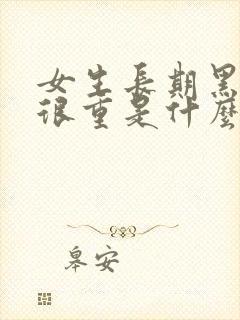 女生長期黑
很重是什麼
皋安